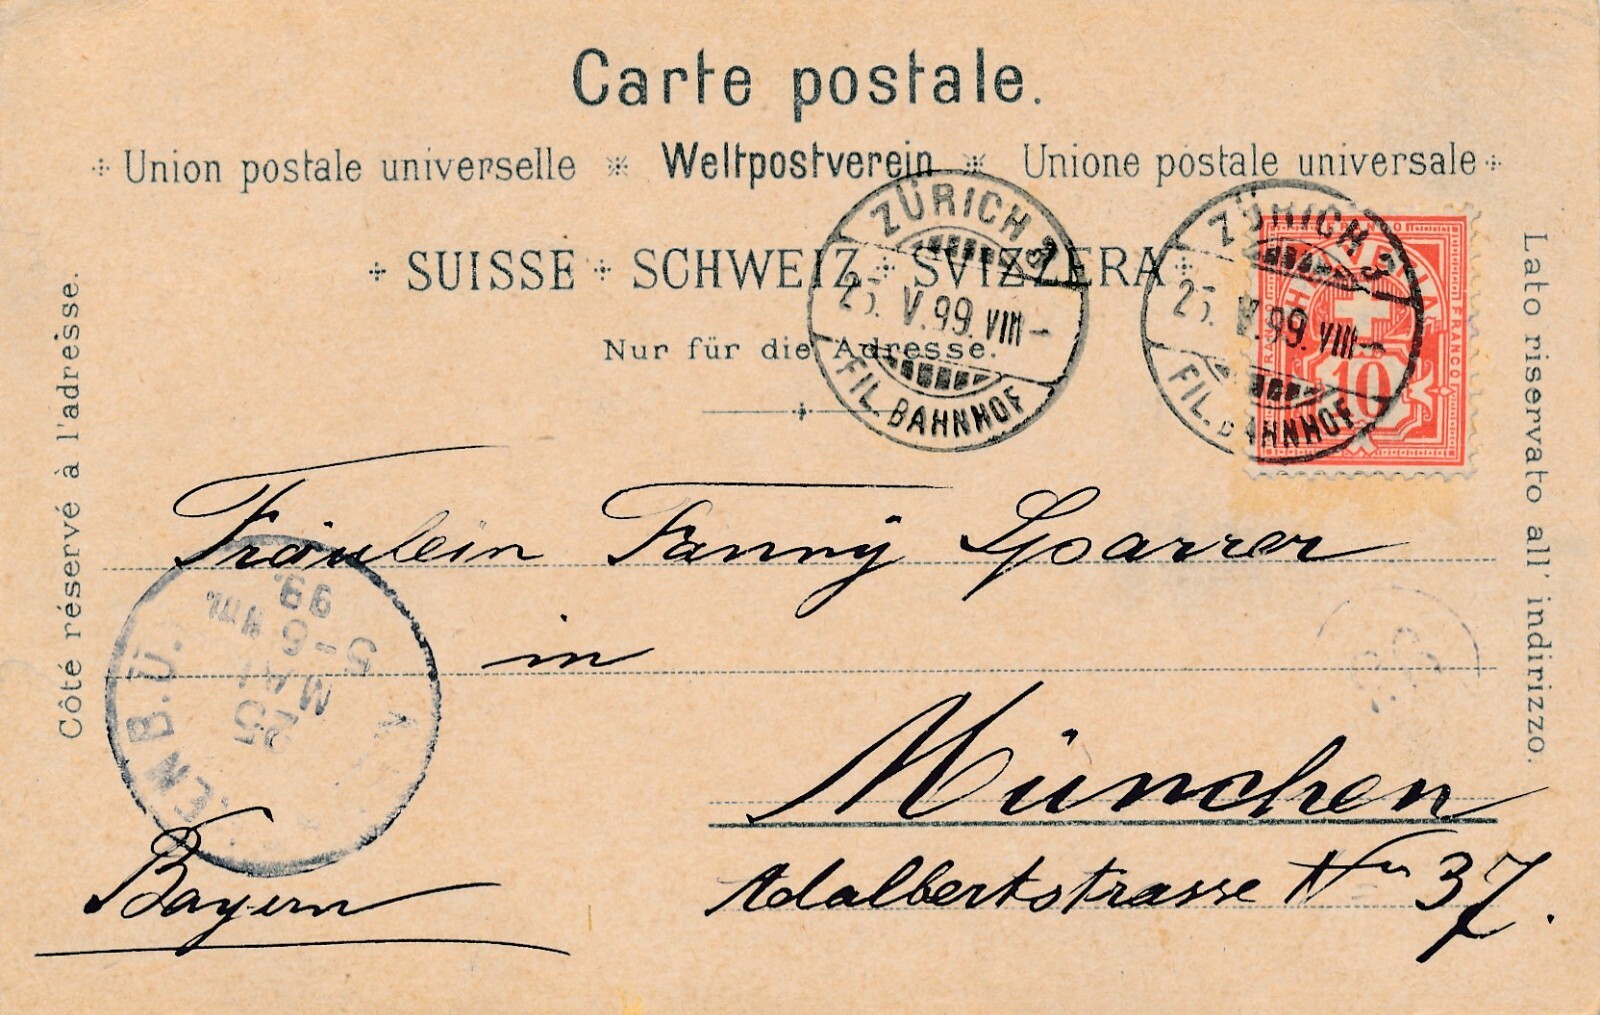 Carte postale.
Union postale universelle Weltpostverein Unione postale universale
SUISSE SCHWEIZ SVIZZERA
Nur für die Adresse.
Côté réservé à l'adresse.
Lato riservato all' indirizzo.
ZÜRICH 3
25. V.99. VIII-
FIL. BAHNHOF
ZÜRICH 3
25. V.99. VIII-
FIL. BAHNHOF
HELVETIA
FRANCO
FRANCO
FRANCO
10
Fräulein Fanny Sparrer
in
München
Adalbertstrasse No 37.
Bayern
B.Ü.
25
MAI
5-6
99.